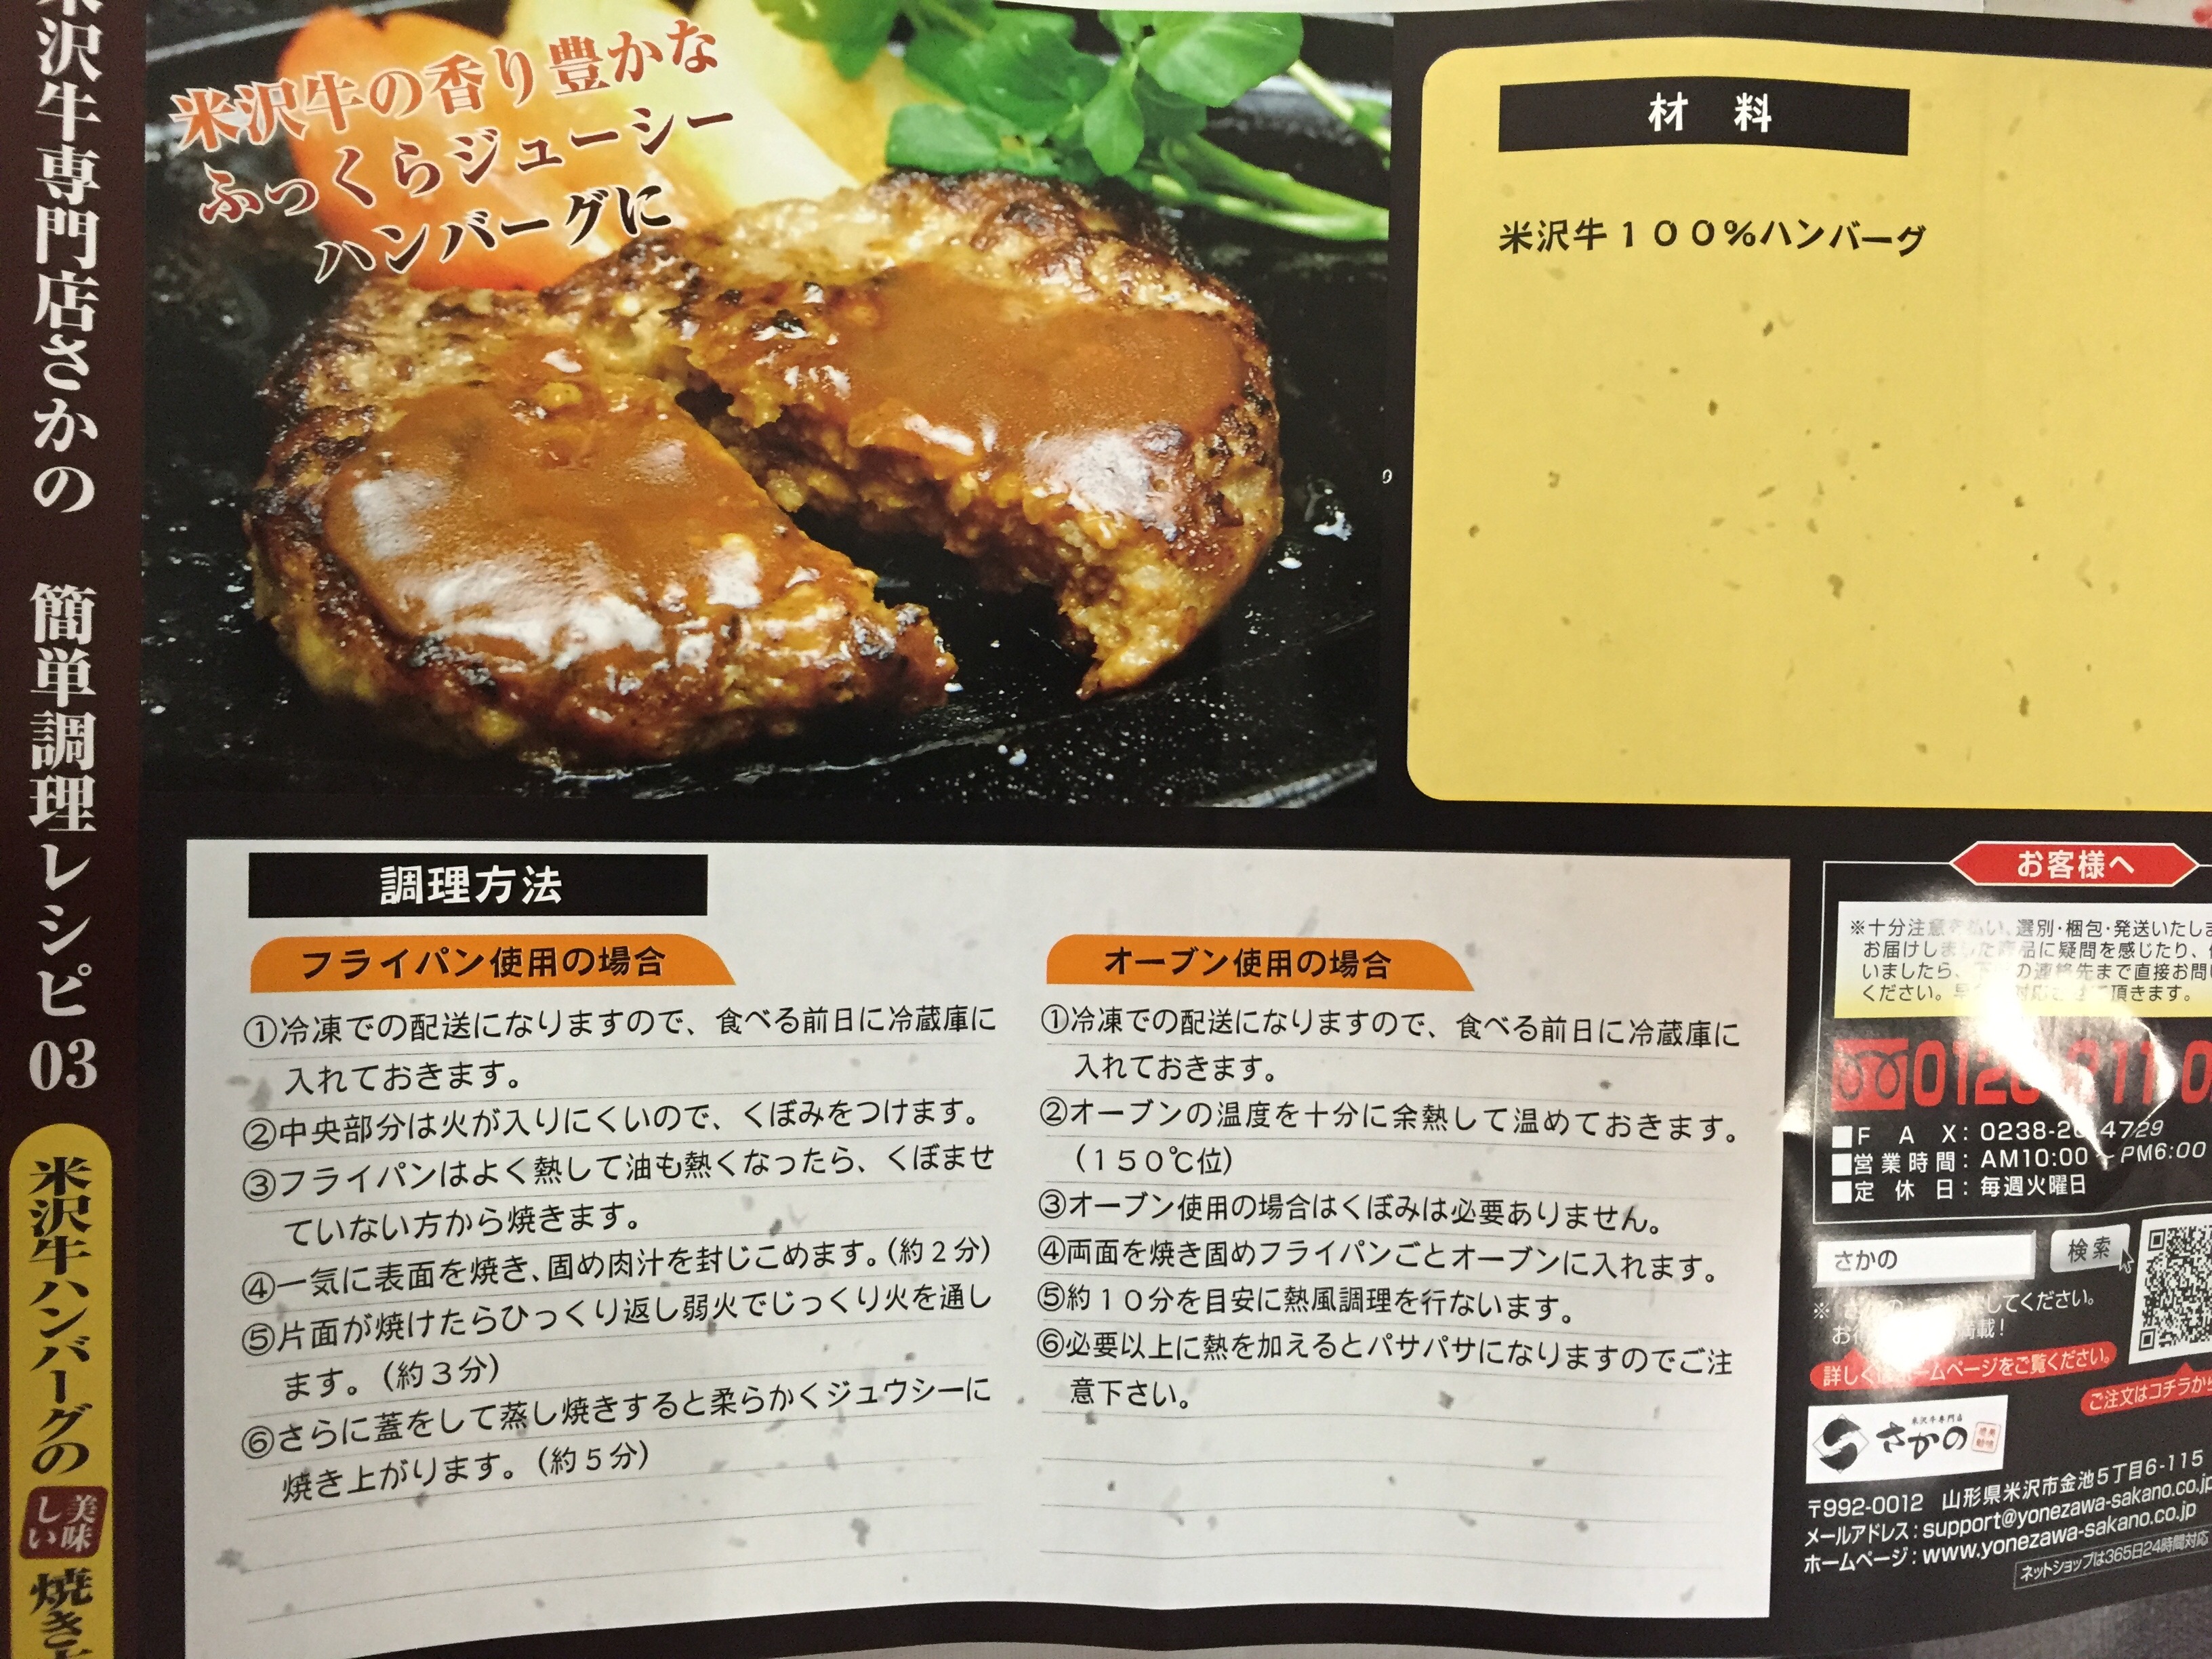 米沢牛専門店さかの 簡単調理レシピ 03
米沢牛ハンバーグの
美味しい
焼き
米沢牛の香り豊かな
ふっくらジューシー
ハンバーグに
材 料
米沢牛100%ハンバーグ
調理方法
フライパン使用の場合
①冷凍での配送になりますので、食べる前日に冷蔵庫に
入れておきます。
②中央部分は火が入りにくいので、くぼみをつけます。
③フライパンはよく熱して油も熱くなったら、くぼませ
ていない方から焼きます。
④一気に表面を焼き、固め肉汁を封じこめます。(約2分)
⑤片面が焼けたらひっくり返し弱火でじっくり火を通し
ます。(約3分)
⑥さらに蓋をして蒸し焼きすると柔らかくジュウシーに
焼き上がります。(約5分)
オーブン使用の場合
①冷凍での配送になりますので、食べる前日に冷蔵庫に
入れておきます。
②オーブンの温度を十分に余熱して温めておきます。
(150℃位)
③オーブン使用の場合はくぼみは必要ありません。
④両面を焼き固めフライパンごとオーブンに入れます。
⑤約10分を目安に熱風調理を行ないます。
⑥必要以上に熱を加えるとパサパサになりますのでご注
意下さい。
お客様へ
※十分注意を払い、選別・梱包・発送いたしま
お届けしました商品に疑問を感じたり、
いましたら、の連絡先まで直接お問
ください。対応させて頂きます。
■F A X: 0238-26-4729
■営業時間: AM10:00~PM6:00
■定休日: 毎週火曜日
さかの
検索
してください。
満載!
詳しくはホームページをご覧ください。
ご注文はコチラから
米沢牛専門店
さかの
〒992-0012 山形県米沢市金池5丁目6-115
メールアドレス: support@yonezawa-sakano.co.jp
ホームページ: www.yonezawa-sakano.co.jp
ネットショップは365日24時間対応